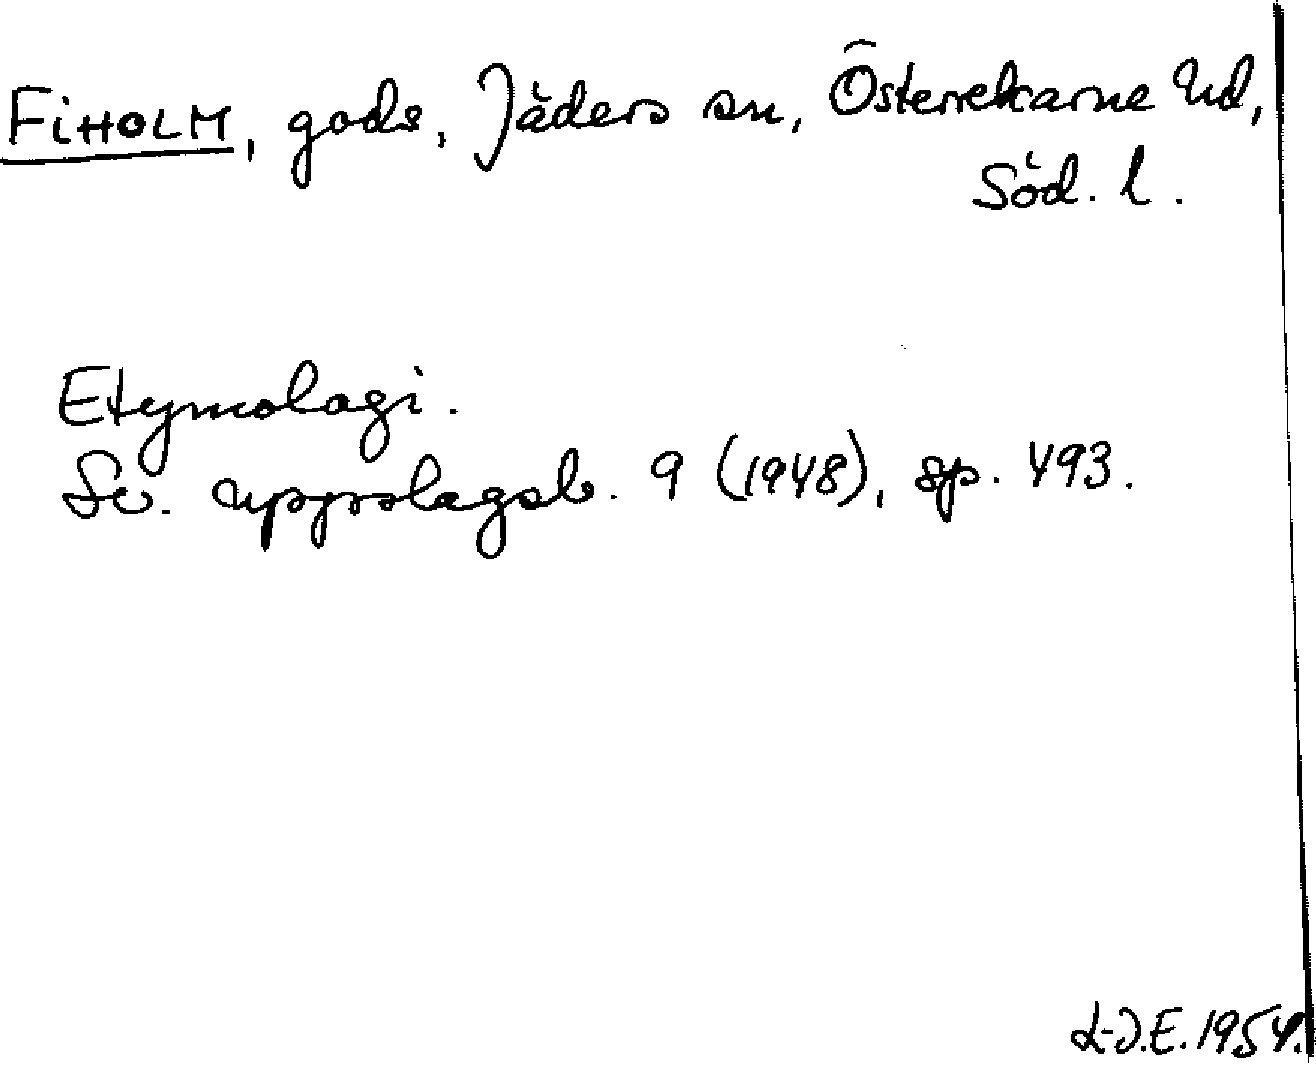 FIHOLM, gods, Jäders sn, Österrekarne hd,
Söd. l.
Etymologi.
Sv. uppslagsb. 9 (1948), sp. 493.
L-J.E. 1954.